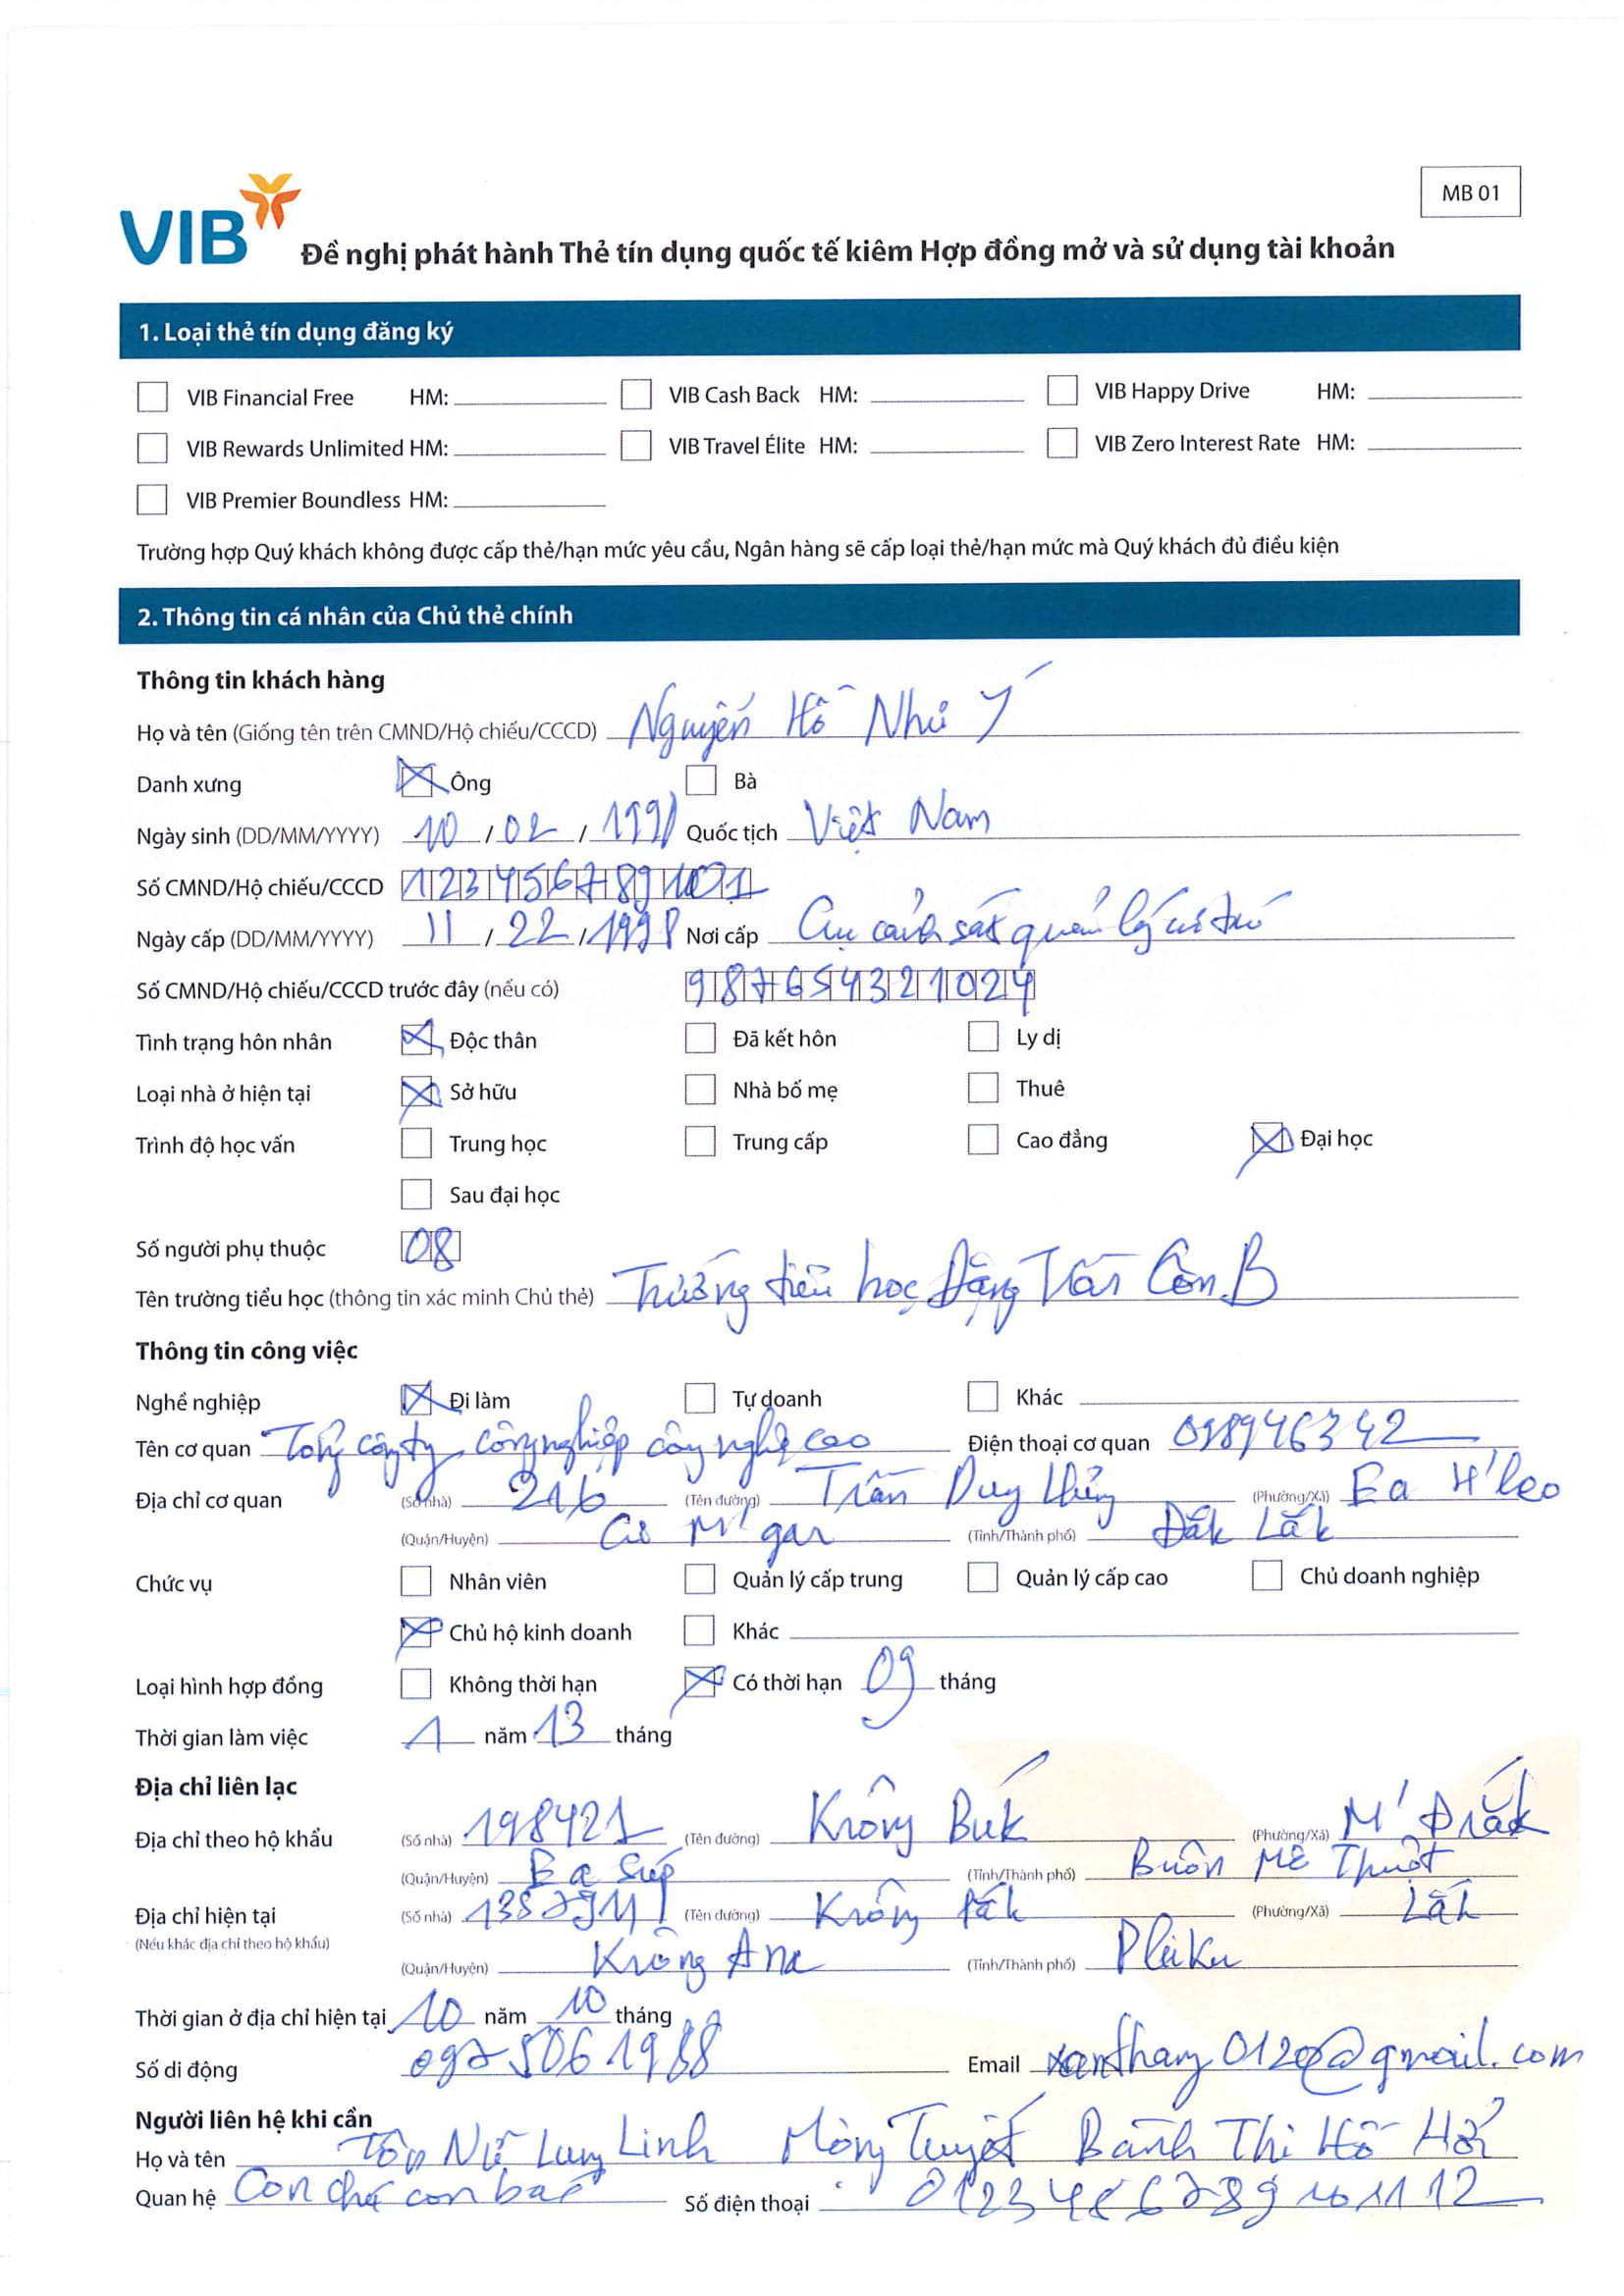 MB 01
VIB
Đề nghị phát hành Thẻ tín dụng quốc tế kiêm Hợp đồng mở và sử dụng tài khoản
1. Loại thẻ tín dụng đăng ký
VIB Financial Free HM: VIB Cash Back HM: VIB Happy Drive HM:
VIB Rewards Unlimited HM: VIB Travel Élite HM: VIB Zero Interest Rate HM:
VIB Premier Boundless HM:
Trường hợp Quý khách không được cấp thẻ/hạn mức yêu cầu, Ngân hàng sẽ cấp loại thẻ/hạn mức mà Quý khách đủ điều kiện
2. Thông tin cá nhân của Chủ thẻ chính
Thông tin khách hàng
Họ và tên (Giống tên trên CMND/Hộ chiếu/CCCD) Nguyễn Hồ Như Ý
Danh xưng Ông Bà
Ngày sinh (DD/MM/YYYY) 10 / 02 / 1991 Quốc tịch Việt Nam
Số CMND/Hộ chiếu/CCCD 123456789101
Ngày cấp (DD/MM/YYYY) 11 / 22 / 1998 Nơi cấp Cục cảnh sát quản lý cư trú
Số CMND/Hộ chiếu/CCCD trước đây (nếu có) 987654321024
Tình trạng hôn nhân Độc thân Đã kết hôn Ly dị
Loại nhà ở hiện tại Sở hữu Nhà bố mẹ Thuê
Trình độ học vấn Trung học Trung cấp Cao đẳng Đại học
Sau đại học
Số người phụ thuộc 08
Tên trường tiểu học (thông tin xác minh Chủ thẻ) Trường tiểu học Đặng Văn B
Thông tin công việc
Nghề nghiệp Đi làm Tự doanh Khác
Tên cơ quan Tổng công ty công nghiệp công nghệ cao Điện thoại cơ quan 098946342
Địa chỉ cơ quan (Số nhà) 216 (Tên đường) Trần Duy Hưng (Phường/Xã) Ea H'leo
(Quận/Huyện) Cư M'gar (Tỉnh/Thành phố) Đắk Lắk
Chức vụ Nhân viên Quản lý cấp trung Quản lý cấp cao Chủ doanh nghiệp
Chủ hộ kinh doanh Khác
Loại hình hợp đồng Không thời hạn Có thời hạn 09 tháng
Thời gian làm việc 1 năm 13 tháng
Địa chỉ liên lạc
Địa chỉ theo hộ khẩu (Số nhà) 198421 (Tên đường) Krông Búk (Phường/Xã) M'Đrắk
(Quận/Huyện) Ea Súp (Tỉnh/Thành phố) Buôn Mê Thuột
Địa chỉ hiện tại (Số nhà) (Tên đường) Krông Pắk (Phường/Xã) Lắk
(Nếu khác địa chỉ theo hộ khẩu)
(Quận/Huyện) Krông Ana (Tỉnh/Thành phố) Plêiku
Thời gian ở địa chỉ hiện tại 10 năm 10 tháng
Số di động 0975061988 Email
Người liên hệ khi cần
Họ và tên Tôn Nữ Linh Mộng Tuyết Bành Thị Hồ
Quan hệ Con chú con bác Số điện thoại 0123456789101112